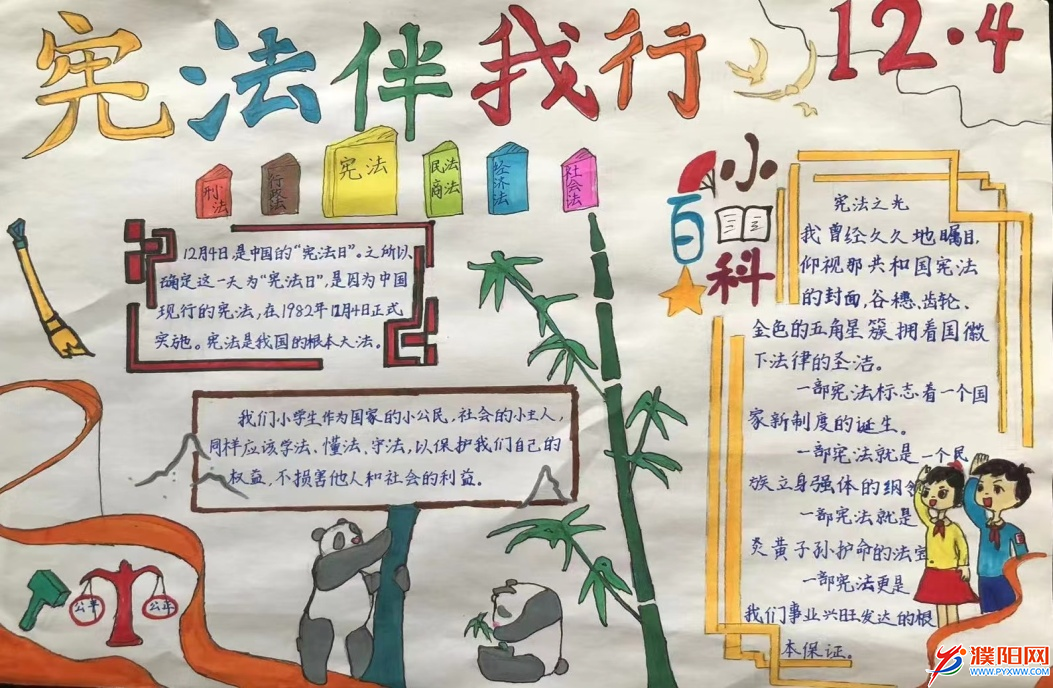 宪法伴我行
12·4
刑法
行政法
宪法
民法
商法
经济法
社会法
小百科
12月4日,是中国的“宪法日”。之所以,
确定这一天为“宪法日”,是因为中国
现行的宪法,在1982年12月4日正式
实施。宪法是我国的根本大法。
我们小学生作为国家的小公民,社会的小主人,
同样应该学法、懂法、守法,以保护我们自己的
权益,不损害他人和社会的利益。
公平
公正
宪法之光
我曾经久久地瞩目,
仰视那共和国宪法
的封面,谷穗、齿轮、
金色的五角星簇拥着国徽
下法律的圣洁。
一部宪法标志着一个国
家新制度的诞生。
一部宪法就是一个民
族立身强体的纲
一部宪法就是
炎黄子孙护命的法宝
一部宪法更是
我们事业兴旺发达的根
本保证。
濮阳网
WWW.PYXWW.COM